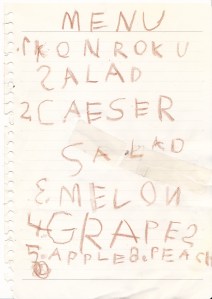 MENU
1.KONROKU
SALAD
2.CAESER
SALAD
3.MELON
4GRAPES
5.APPLE8.PEACH